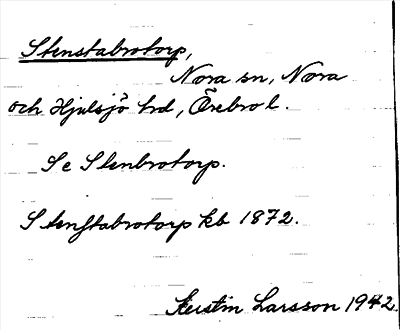 Stenstabrotorp,
Nora sn, Nora
och Hjulsjö hd, Örebro l.
Se Stenbrotorp.
Stenstabrotorp kb 1872.
Kerstin Larsson 1942.